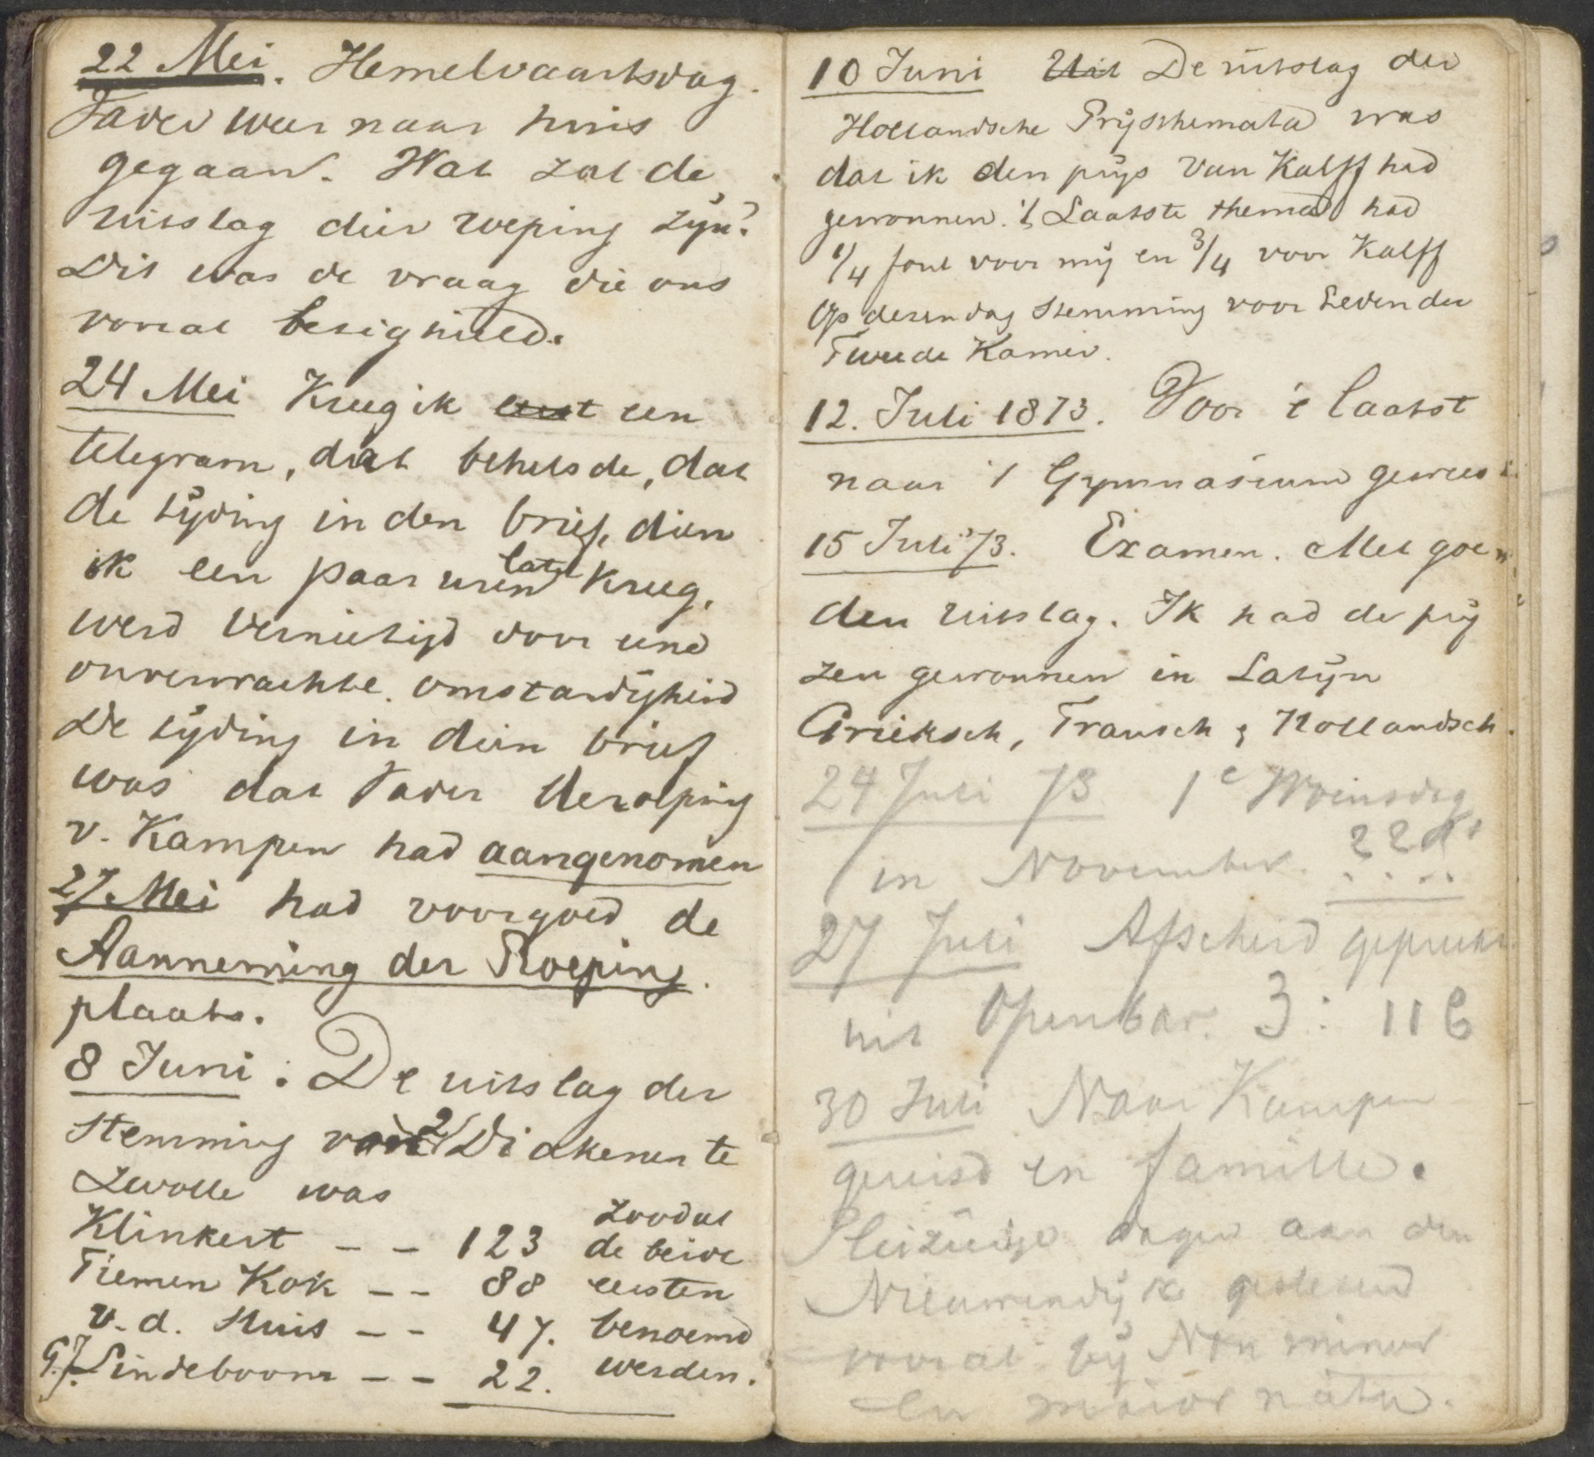 22 Mei. Hemelvaartsdag.
Vader weer naar huis
gegaan. Wat zal de
uitslag dier roeping zijn?
Dit was de vraag die ons
vooral bezighield.
24 Mei Kreeg ik een
telegram, dat behelsde, dat
de tijding in den brief, dien
ik een paar uren later kreeg,
werd vernietigd door eene
onverwachte omstandigheid
De tijding in dien brief
was dat Vader de roeping
v. Kampen had aangenomen
27 Mei had voorgoed de
Aanneming der Roeping
plaats.
8 Juni: De uitslag der
stemming voor 2 Diakenen te
Zwolle was
Klinkert - - 123 zoodat de beide
Tiemen Kok - - 88 eersten
v. d. Sluis - - 47. benoemd
G.J. Lindeboom - - 22. werden.
10 Juni Uit De uitslag der
Hollandsche Prijsthemata was
dat ik den prijs van Kalff had
gewonnen. 't Laatste thema had
1/4 fout voor mij en 3/4 voor Kalff
Op dezen dag stemming voor Leden der
Tweede Kamer.
12. Juli 1873. Voor 't laatst
naar 't Gymnasium geweest
15 Juli '73. Examen. Met goe-
den uitslag. Ik had de prij
zen gewonnen in Latijn
Grieksch, Fransch & Hollandsch.
24 Juli 73 1e Woensdag
in November.
27 Juli Afscheid gepreekt
uit Openbar. 3: 11b
30 Juli Naar Kampen
gereisd en famille.
Pleizierige dagen aan den
Nieuwendijk gesleten
vooral bij Non minor
en maior natu.